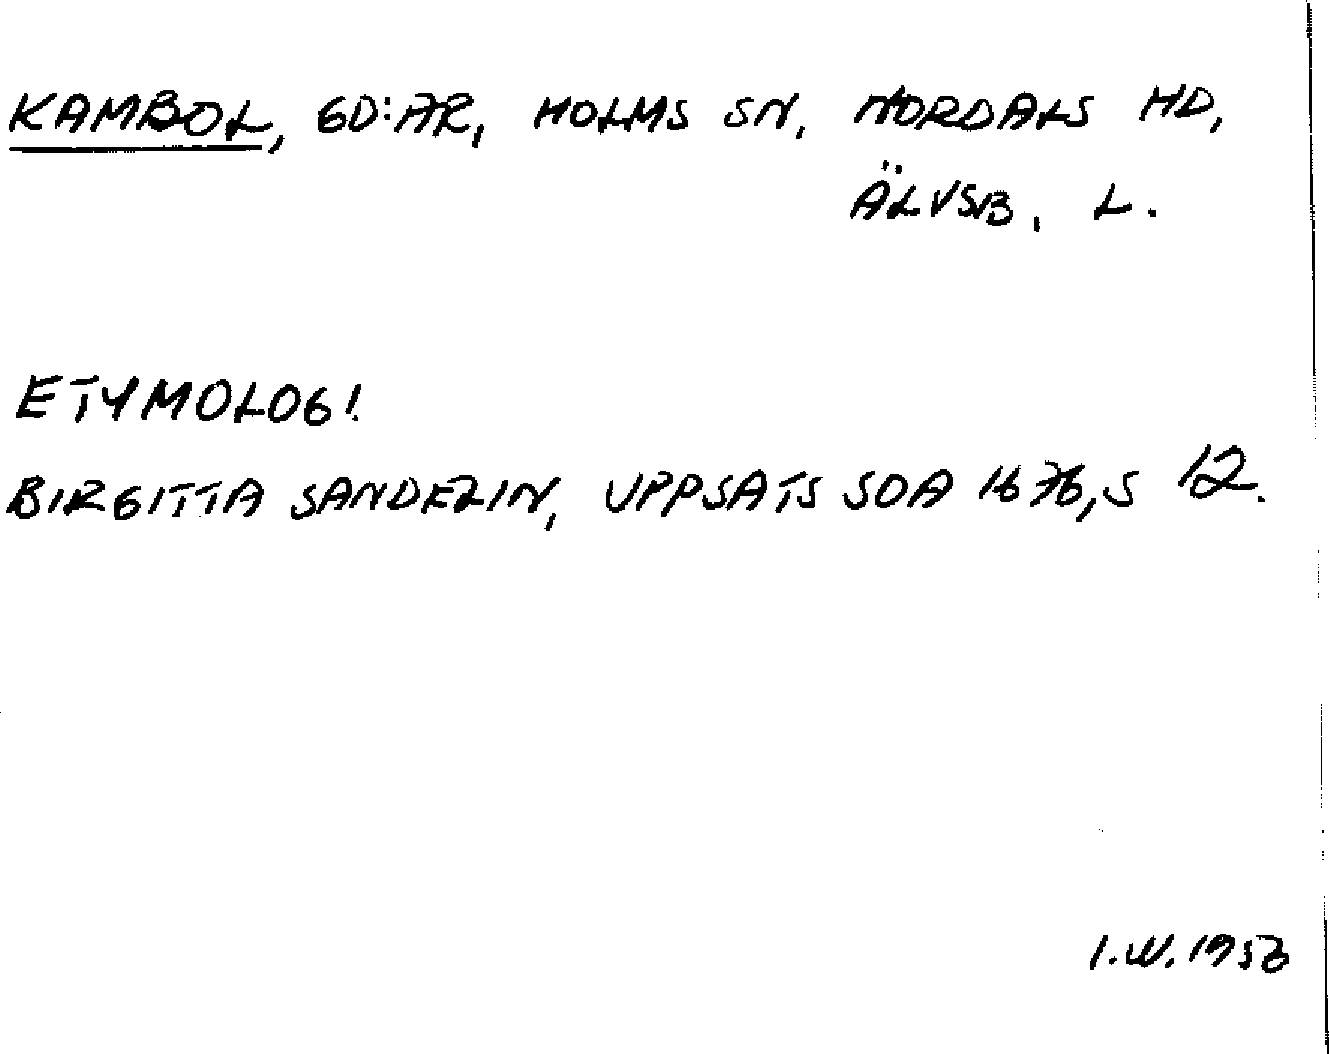 KAMBOL, GD:AR, HOLMS SN, NORDALS HD,
ÄLVSB, L.
ETYMOLOGI.
BIRGITTA SANDELIN, UPPSATS SOA 1676, S 12.
I.W. 1953